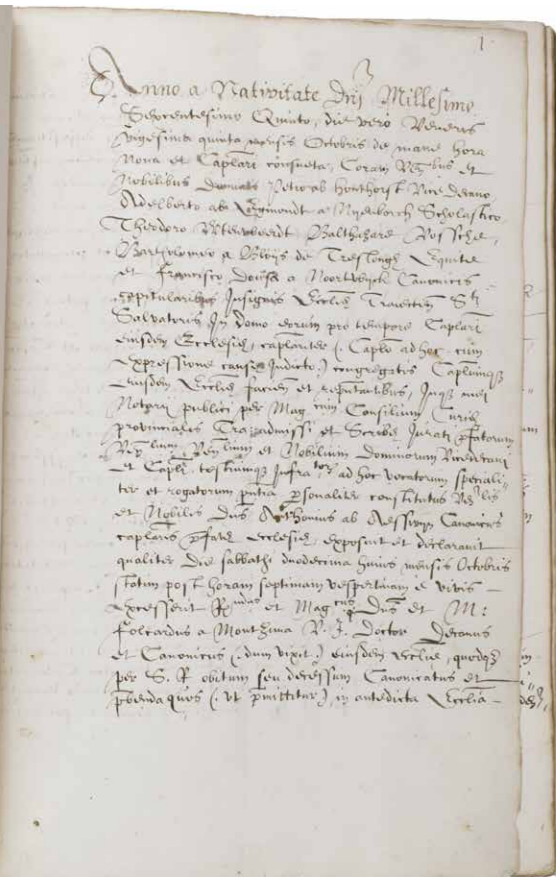 1.
Anno a Nativitate Dni Millesimo
Sexcentesimo Quinto, die vero Veneris
vigesima quinta mensis Octobris de mane hora
Nona et Caplari consueta, Coram et
Nobilibus Petro ab honthorst Vice decano
Adelberto ab Egmondt a Nijenborch Scholastico
Theodoro Balthazare Vossche,
Bartholomeo a Bloijs de Treslongh Equite
et Francisco Dousa a Noortwyck Canonicis
capitularibus Insignis Ecclie Traiecten Sti
Salvatoris In domo eorum pro tempore Caplari
eiusdem Ecclesie, caplariter (: Caplo ad hoc cum
expressione cause Indicto:) congregatis Caplumqz
eiusdem Ecclie facien et reputantibus, Inqz mei
Notarij publici per Mag cum Consilium Curie
provincialis Tra admissi et Scribe Jurati pfatorum
et Nobilium Dominorum Vicedecani
et Capli, testiumqz infra ad hoc vocatorum speciali
ter et rogatorum pntia psonaliter constitutus
et Nobilis Dns Anthonius ab Aesswyn Canonicus
caplaris pfate Ecclesie, exposuit et declaravit
qualiter die sabbathi duodecima huius mensis Octobris
statim post horam septimam vespertinam e vivis
excesserit Rndus et Mag cus Dns et M:
Folcardus a Monthima V. J. Doctor Decanus
et Canonicus (: dum vixit:) eiusdem Ecclie, quodqz
per S. R obitum seu decessum Canonicatus et
pbenda quos (: vt pmittitur:) in antedicta Ecclia